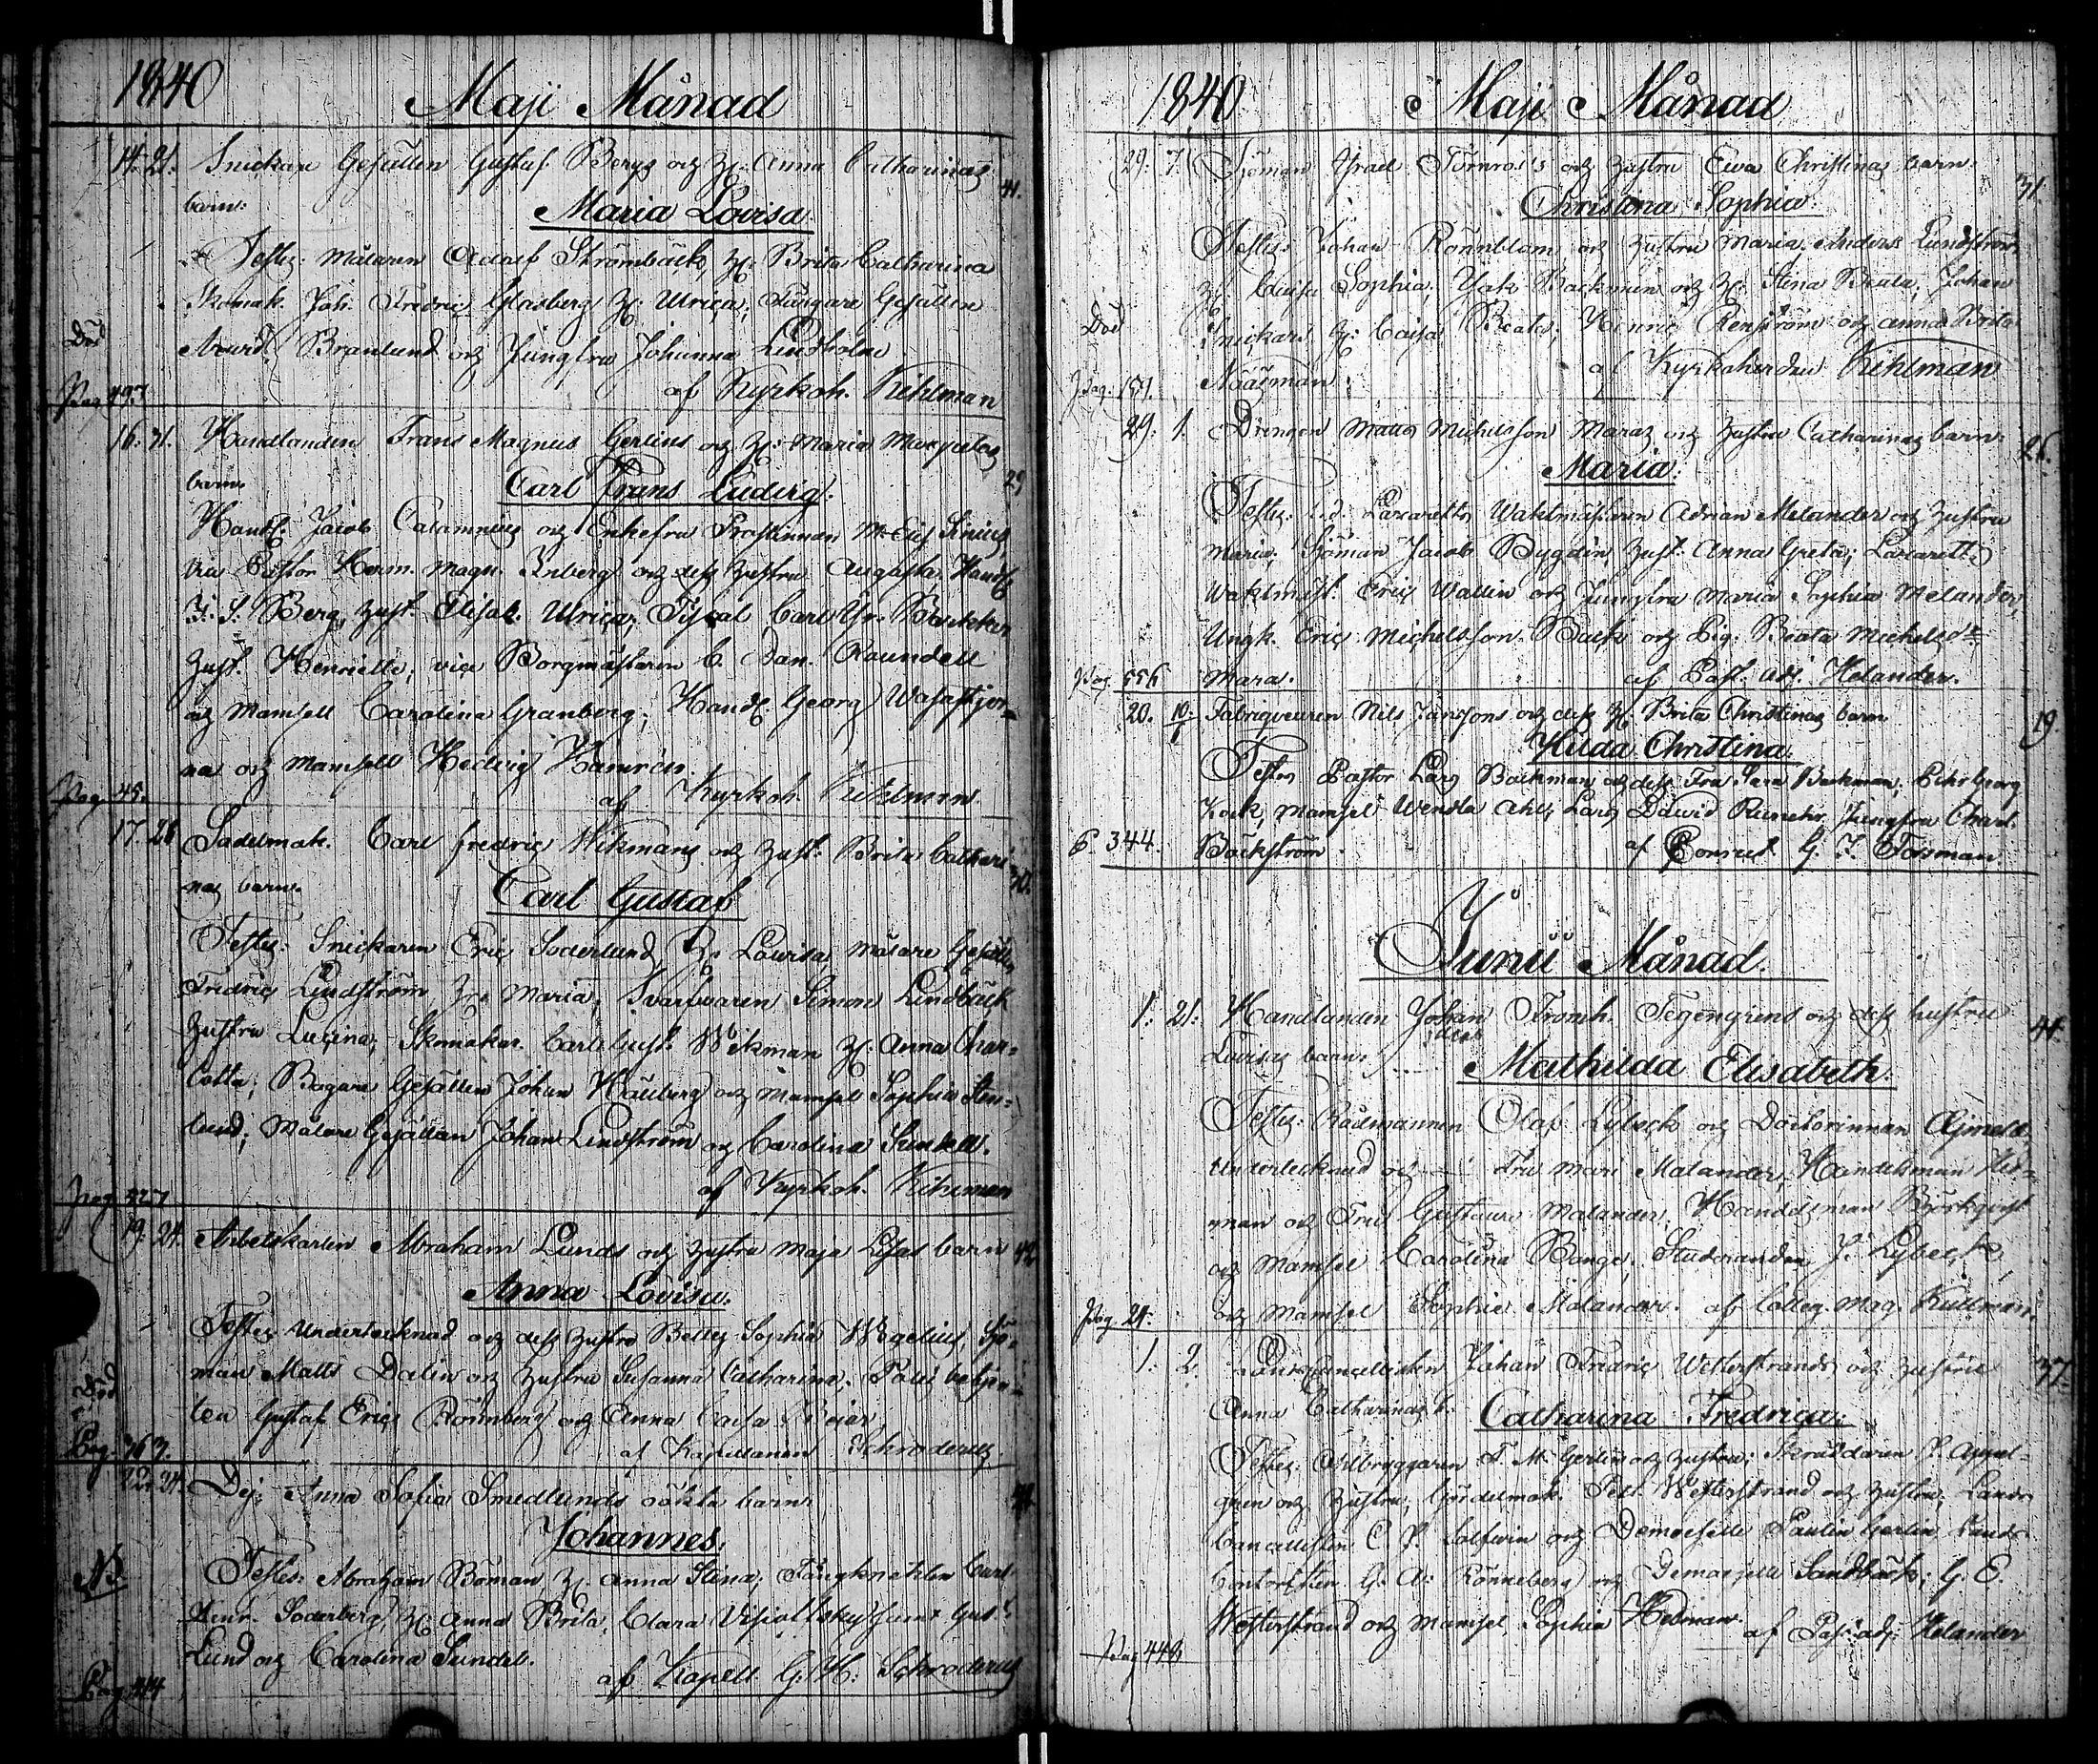 1840 Maji Månad
14. 21. Snickare Gesällen Gustaf Bergs och H: Anna Catharinas 41.
barn:
Maria Lovisa.
Testes: Målaren Adolf Strömbäck, H: Brita Catharina
Skomak. Joh. Fredric Glasberg H: Ulrica;
Död
Arvid Branlund och Jungfru Johanna Lindholm
af Kyrkoh. Kihlman
Pag 497
16. 31. Handlanden Frans Magnus Gerlins och H: Maria 29
barn
Carl Frans Ludvig.
Handl: Jacob Calamnius och Enkefru Prostinnan
Pastor Herm. Magn. Inberg och dess hustru Augusta Handl
Berg, Hust. Elisab. Ulrica; Fiskal Carl
Hust. Henriette; vice Borgmästaren C. Dan. Roundell
och Mamsell Carolina Granberg; Handl: Georg Wasastjer=
na och Mamsell Hedvig
af Kyrkoh. Kihlman
Pag 45.
17. 28 Sadelmak. Carl Fredric Wikmans och Hust: Brita Cathari
nas barn. 30.
Carl Gustaf
Testes: Snickaren Eric Söderlund, H: Lovisa, Målare Gesällen
Fredric Lindström, H: Maria; Svarfvaren Simon Lindbäck
Hustru Lusina; Skomakar. Carl Gust. Wikman H: Anna Char=
lotta; Bagare Gesällen Johan Hauberg och Mamsell Sophia Sten=
lund; Målare Gesällen Johan Lindström och Carolina Sundell.
af Kyrkoh. Kihlman
Pag 427
19. 24. Arbetskarlen Abraham Lunds och Hustru Maja Lisas barn 42
Anna Lovisa.
Testes Undertecknad och dess Hustru Betty Sophia Wegelius, Sjö=
man Matts Dalin och Hustru Susanna Catharina; Polis betjen=
Död
ten Gustaf Eric Rönnberg och Anna Caisa
af Kapellanen Schroderus
Pag. 363.
22. 24. Dej: Anna Sofia Smedlunds oäkta barn.
Johannes.
Testes: Abraham Böman H: Anna Stina; Carl
NB
Henr. Söderberg, H: Anna Brita, Clara Gust.
Lund och Carolina Sundell.
af Kapell G. H: Schroderus
Pag. 414
1840 Maji Månad
29: 7. Sjöman Israel Törnros's och Hustru Ewa Christinas barn 31.
Christina Sophia.
Testes: Johan Rönnblom och Hustru Maria; Anders Lundström,
H: Lovisa Sophia; Jak. Backman och H: Stina Beata; Johan
Död
Snickars H: Caisa Beata; Henric Renström och Anna Brita
Nääsman. af Kyrkoherden Kihlman
Pag: 151.
29. 1. Drengen Matts Michelsson Maras och Hustru Catharinas barn: 26.
Maria.
Testes: t.d. Lazaretts Waktmästaren Adrian Melander och Hustru
Maria; Sjöman Jacob Bygdin, Hust. Anna Greta; Lazaretts
Waktmäst. Eric Wallin och Jungfru Maria Sophia Melander;
Ungk. Eric Michelsson Back och Pig. Beata Michelsdr
Mara. af Past. adj. Helander.
Pag 556
20. 10/6 Fabriqueuren Nils Janssons och dess H: Brita Christinas barn 19.
Hilda Christina.
Testes Pastor Lars Backman och dess Fru Sara Backman, Georg
Kock, Mamsel Wendla Ahl; Lars David Jungfru Charl.
Bäckström. af G. J. Forsman
P. 344.
Junii Månad.
1. 21. Handlanden Johan Fromh. Tegengrens och dess hustru 44.
Jacob
Lovisas barn.
Mathilda Elisabeth.
Testes: Rådmannen Olof Lybeck och Doctorinnan Ajmela
Undertecknad och Fru Mari Malander; Handelsman He=
man och Fru Gustava Malander; Handelsman Björkqvist
och Mamsel Carolina Bange; Studeranden J. Lybeck
och Mamsel Sophie Malander. af Colleg. Mag. Kullman.
Pag 24.
1. 2. Lands Cancellisten Johan Fredric Wetterstrands och Hustru 37.
Anna Catharinas b. Catharina Fredrica.
Testes: Ölbryggaren F. M. Gerlin och Hustru; Skräddaren P. Appel=
gren och Hustru; Gördelmak. Wetterstrand och Hustru; Lands
Cancellisten C. P. Solfwin och Demoiselle Paulin Gerlin; Lands
Contoristen G. A. Rönneberg och Demoiselle Sandbäck; G. E.
Wetterstrand och Mamsel Sophia Hedman. af Past. adj. Helander
Pag 448